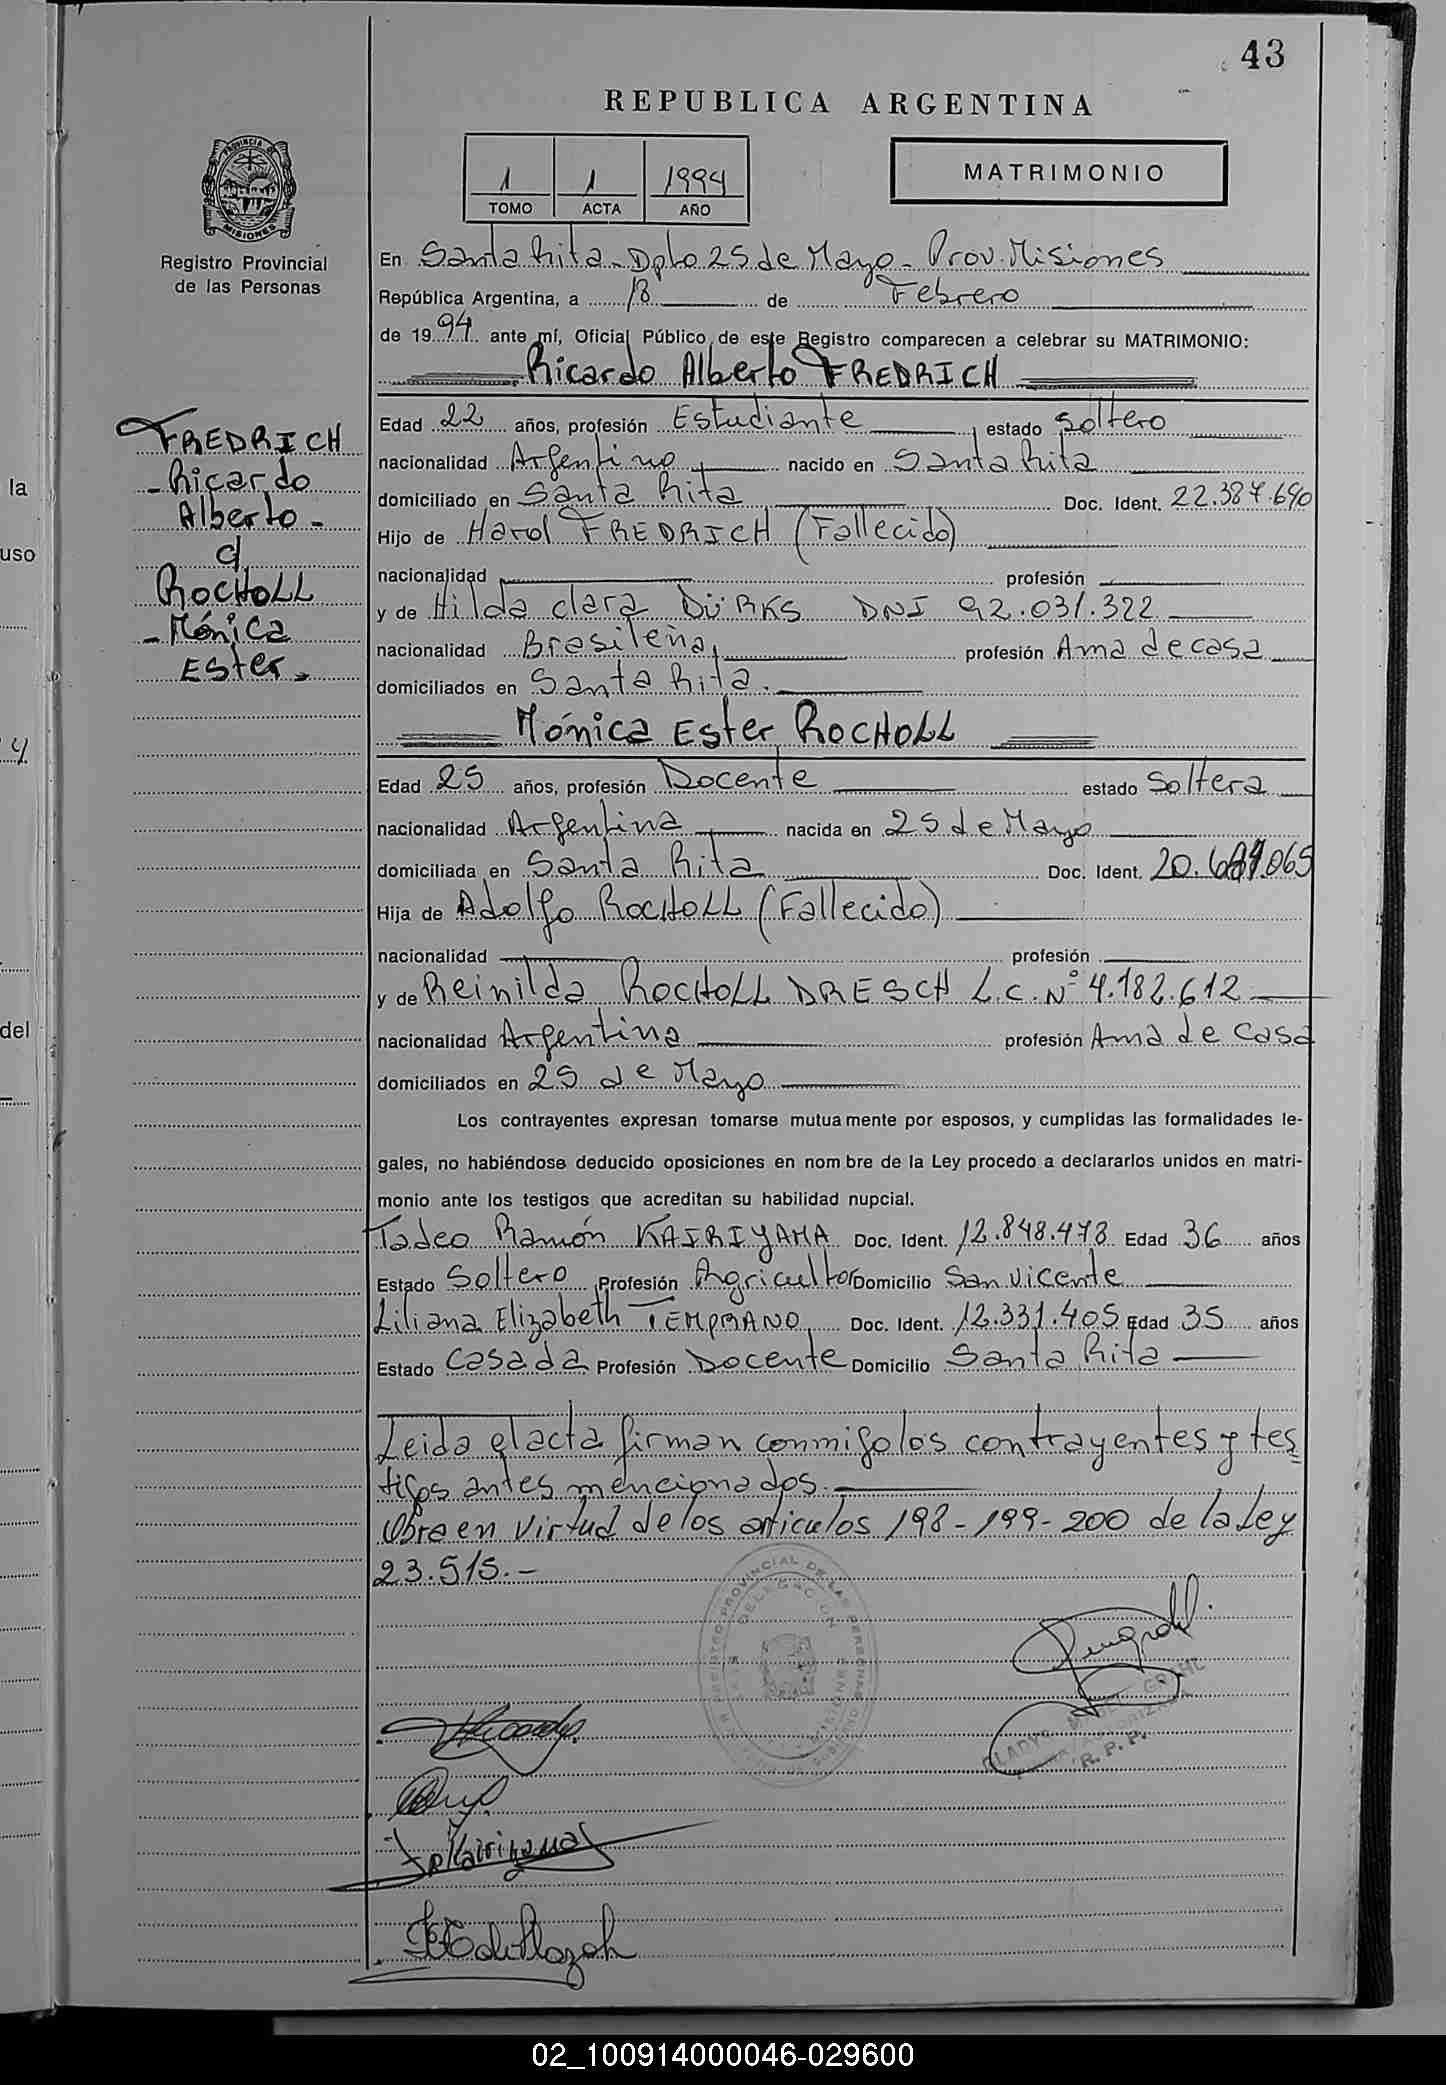 43
REPUBLICA ARGENTINA
1 1 1994
TOMO ACTA AÑO
MATRIMONIO
PROVINCIA DE
MISIONES
Registro Provincial
de las Personas
En Santa Rita - Dpto 25 de Mayo - Prov. Misiones
República Argentina, a 18 de Febrero
de 1994 ante mí, Oficial Público de este Registro comparecen a celebrar su MATRIMONIO:
Ricardo Alberto FREDRICH
FREDRICH
- Ricardo
Alberto -
c/
ROCHOLL
- Mónica
Ester -
Edad 22 años, profesión Estudiante estado soltero
nacionalidad Argentino nacido en Santa Rita
domiciliado en Santa Rita Doc. Ident. 22.387.690
Hijo de Harol FREDRICH (Fallecido)
nacionalidad profesión
y de Hilda clara DÜRKS DNI 92.031.322
nacionalidad Brasileña profesión Ama de casa
domiciliados en Santa Rita.
Mónica Ester ROCHOLL
Edad 25 años, profesión Docente estado Soltera
nacionalidad Argentina nacida en 25 de Mayo
domiciliada en Santa Rita Doc. Ident.
Hija de Adolfo ROCHOLL (Fallecido)
nacionalidad profesión
y de Reinilda ROCHOLL DRESCH L.C. N° 4.182.612
nacionalidad Argentina profesión Ama de casa
domiciliados en 25 de Mayo
Los contrayentes expresan tomarse mutuamente por esposos, y cumplidas las formalidades le-
gales, no habiéndose deducido oposiciones en nombre de la Ley procedo a declararlos unidos en matri-
monio ante los testigos que acreditan su habilidad nupcial.
Tadeo Ramón KAIRIYAMA Doc. Ident. 12.848.478 Edad 36 años
Estado Soltero Profesión Agricultor Domicilio San Vicente
Liliana Elizabeth TEMPRANO Doc. Ident. 12.331.405 Edad 35 años
Estado Casada Profesión Docente Domicilio Santa Rita
Leida el acta firman conmigo los contrayentes y tes
tigos antes mencionados.
Obra en virtud de los articulos 198-199-200 de la Ley
23.515.-
REGISTRO PROVINCIAL DE LAS PERSONAS
DELEGACION
R.P.P.
la
uso
y
del
02_100914000046-029600